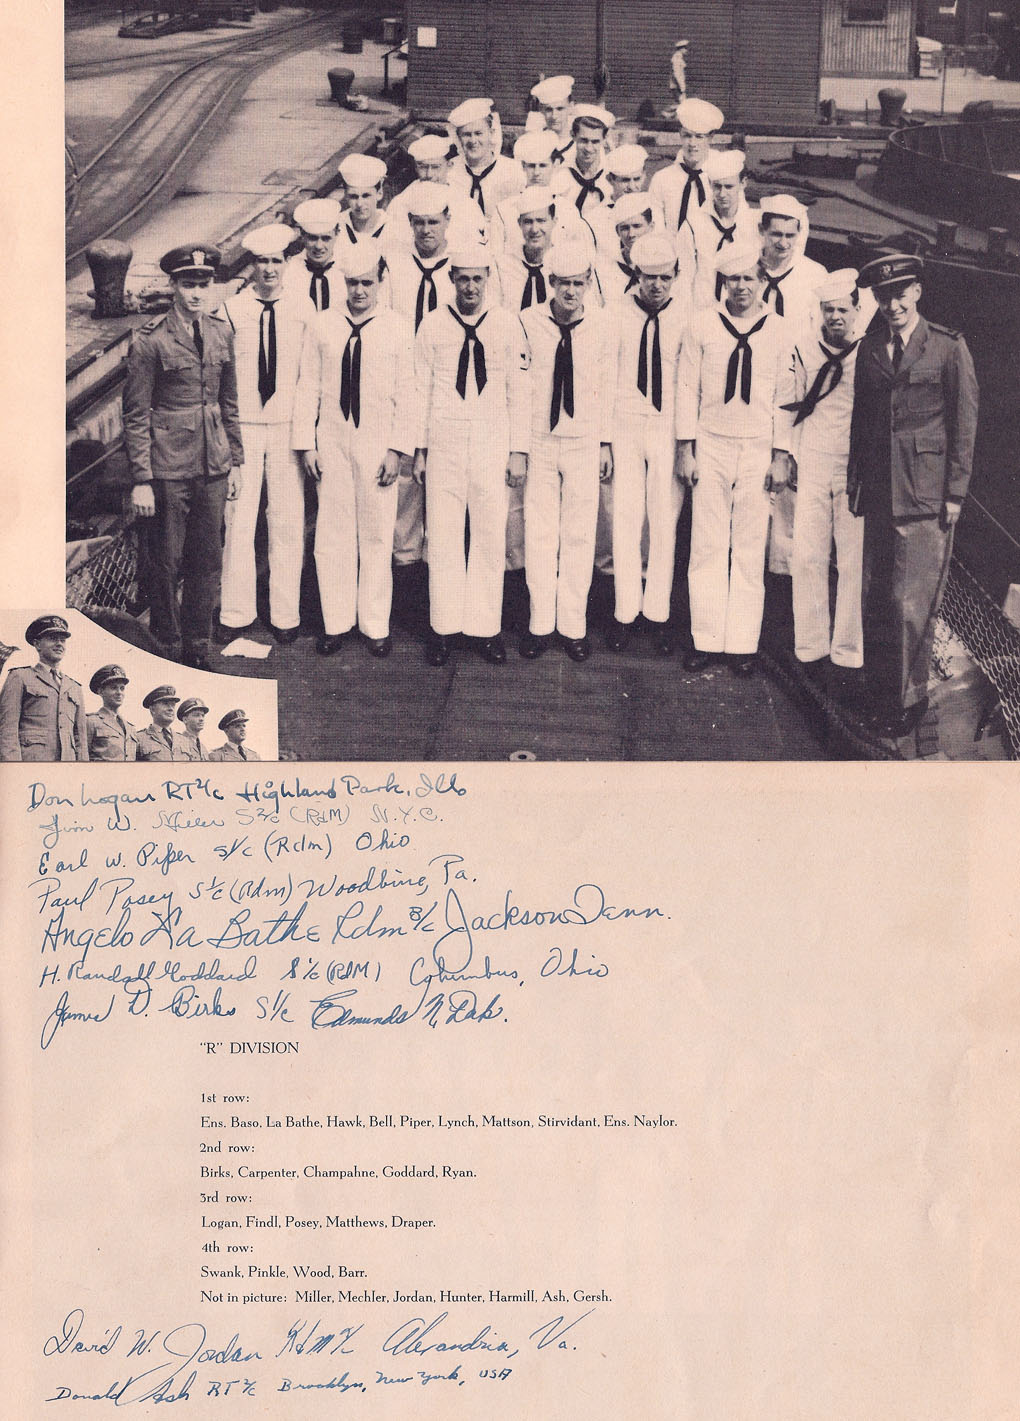 Don Logan RT2/c Highland Park, Ills
Jim W. S2/c (RdM) N.Y.C.
Earl W. Piper S1/c (Rdm) Ohio
Paul Posey S1/c (Rdm) Woodbine, Pa.
Angelo La Bathe Rdm 3/c Jackson Tenn.
H. Randall Goddard S1/c (RdM) Columbus, Ohio
James D. Birks S1/c Edmunds N. Dak.
"R" DIVISION
1st row:
Ens. Baso, La Bathe, Hawk, Bell, Piper, Lynch, Mattson, Stirvidant, Ens. Naylor.
2nd row:
Birks, Carpenter, Champahne, Goddard, Ryan.
3rd row:
Logan, Findl, Posey, Matthews, Draper.
4th row:
Swank, Pinkle, Wood, Barr.
Not in picture: Miller, Mechler, Jordan, Hunter, Harmill, Ash, Gersh.
David W. Jordan Alexandria, Va.
Donald Ash RT 2/c Brooklyn, New York, USA